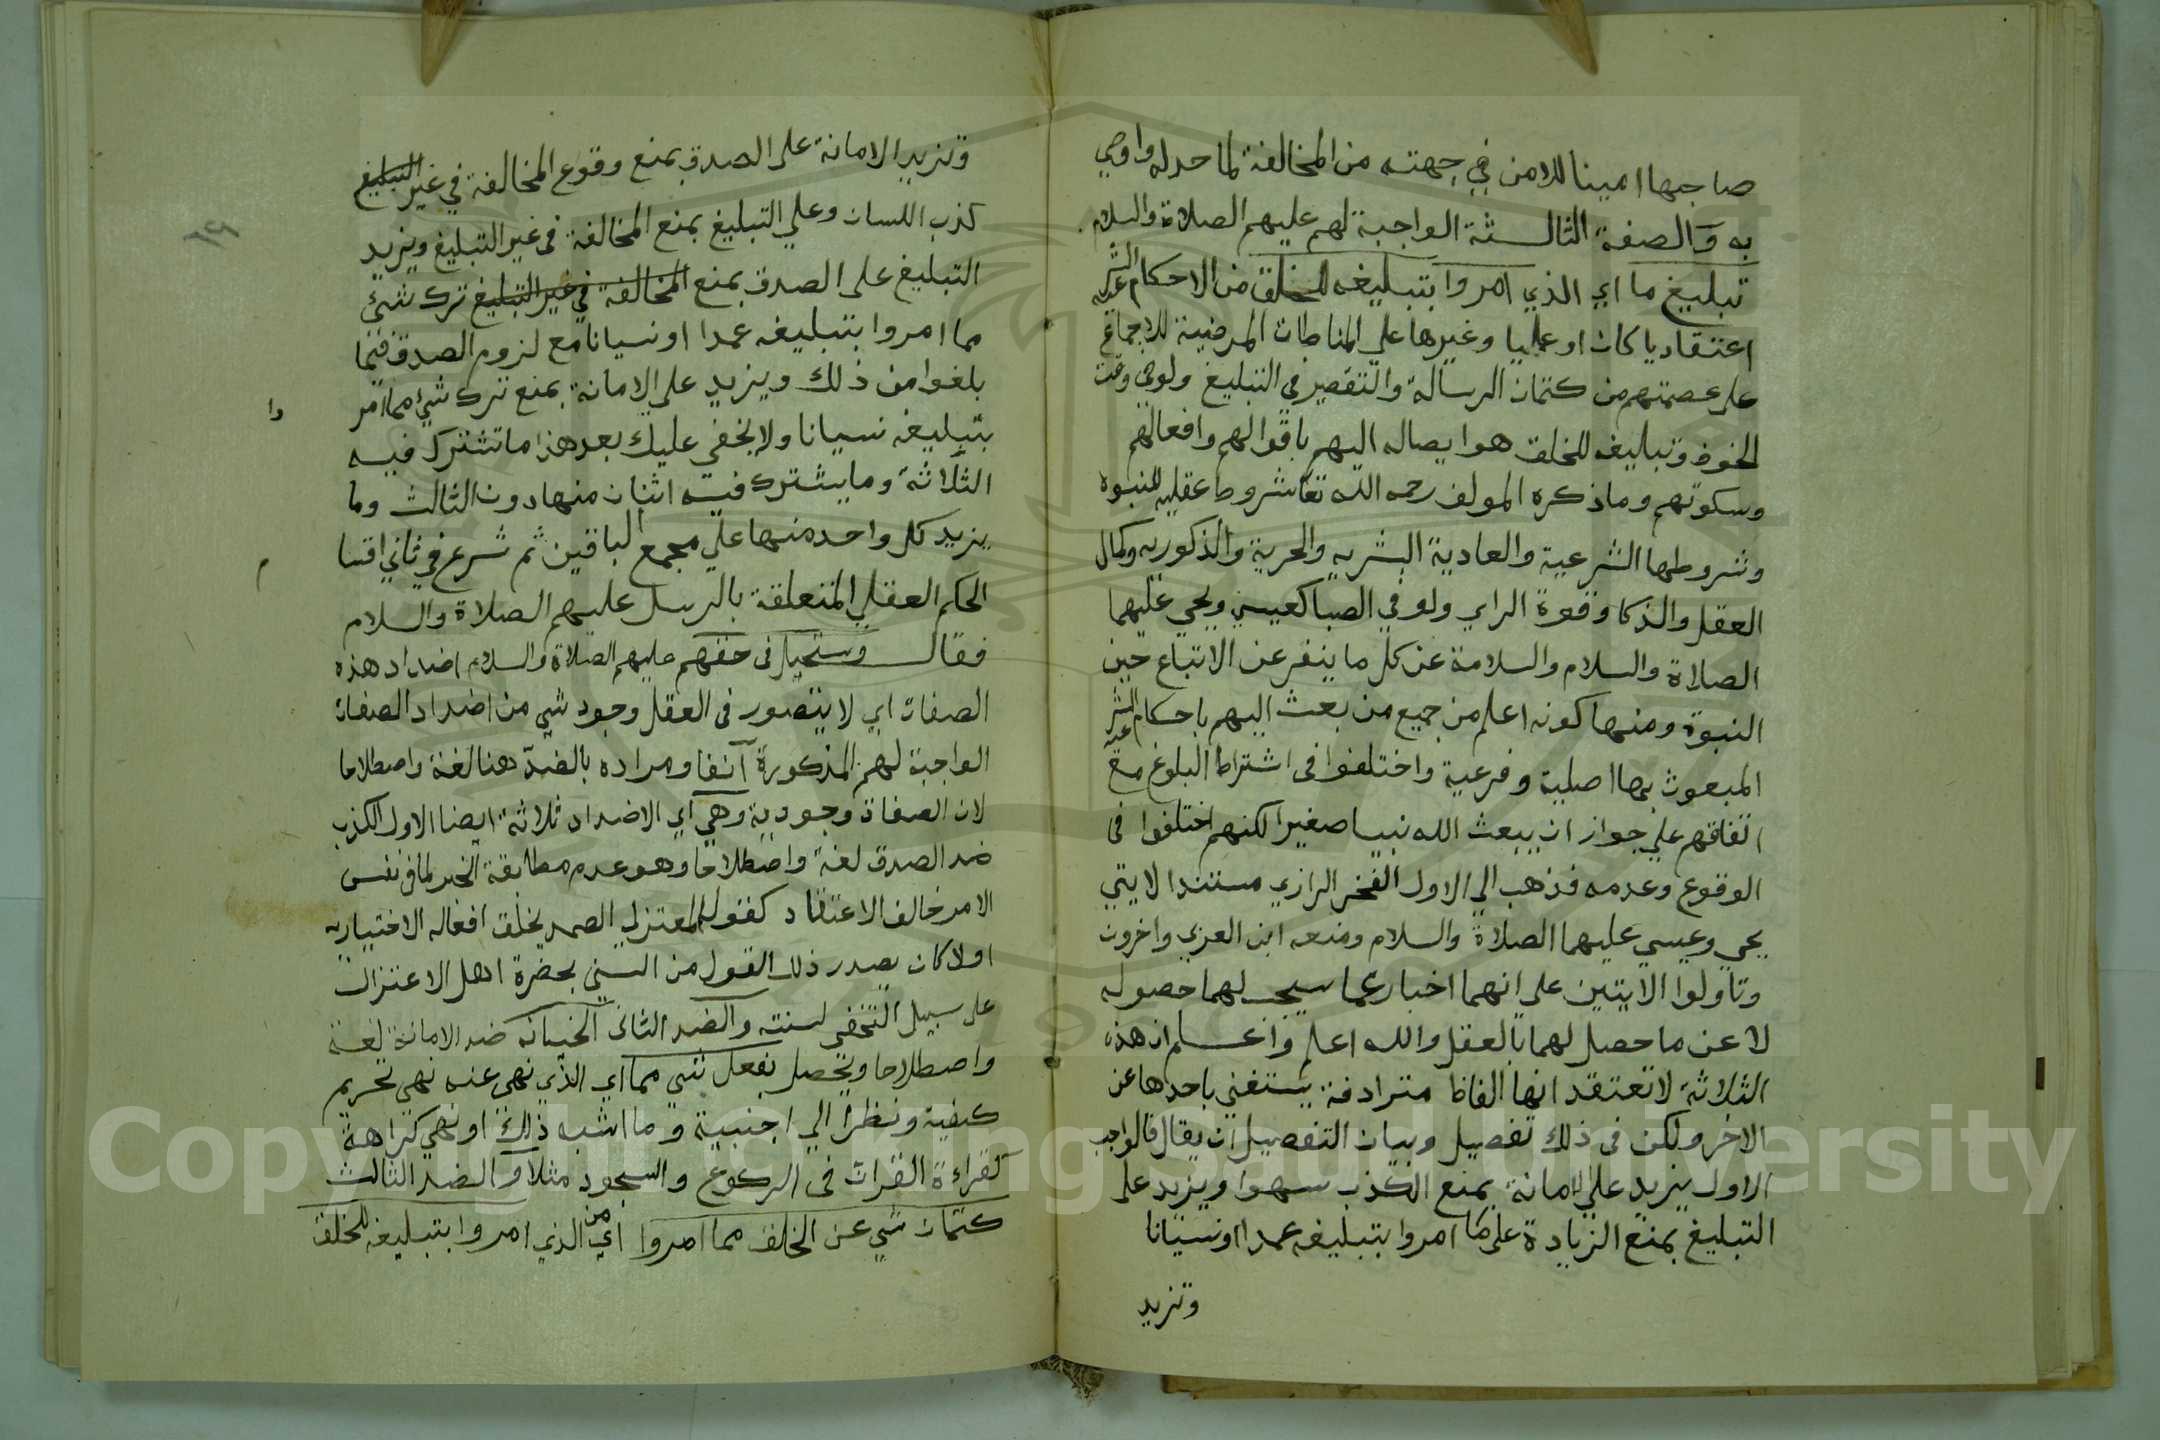 صاحبها امينا للامن في جهته من المخالفة لما حد له واوصي
به والصفة الثالثة الواجبة لهم عليهم الصلاة والسلام
تبليغ ما اي الذي امروا بتبليغه للخلق من الاحكام الشرعيه
اعتقاديا كان او عمليا وغيرها علي المناطات المرضية للاجماع
علي عصمتهم من كتمان الرسالة والتقصير في التبليغ ولو في وقت
الخوف وتبليغه للخلق هو ايصاله اليهم باقوالهم وافعالهم
وسكوتهم وما ذكره المولف رحمه الله تعا شروط عقليه للنبوة
وشروطها الشرعية والعادية البشريه والحرية والذكوريه وكمال
العقل والذكا وقوة الراي ولو في الصبا كعيسي ويحي عليهما
الصلاة والسلام والسلامة عن كل ما ينفر عن الاتباع حين
النبوة ومنها كونه اعلم من جميع من بعث اليهم باحكام الشرعيه
المبعوث بها اصلية وفرعية واختلفوا في اشتراط البلوغ مع
اتفاقهم علي جواز ان يبعث الله نبيا صغيرا لكنهم اختلفوا في
الوقوع وعدمه فذهب الي الاول الفخر الرازي مستندا لايتي
يحي وعيسي عليهما الصلاة والسلام ومنعه ابن العربي واخرون
وتاولوا الايتين علي انهما اخبار عما سيجب لهما حصوله
لا عن ما حصل لهما بالعقل والله اعلم واعلم ان هذه
الثلاثة لا تعتقد انها الفاظ مترادفة يستغني باحدها عن
الاخر ولكن في ذلك تفصيل وبيان التفصيل ان يقال فالواجب
الاول يزيد علي الامانة بمنع الكذب سهوا ويزيد علي
التبليغ بمنع الزيادة علي ما امروا بتبليغه عمدا او نسيانا
وتزيد
وتزيد الامانة علي الصدق بمنع وقوع المخالفة في غير التبليغ
كذب اللسان وعلي التبليغ بمنع المخالفة في غير التبليغ ويزيد
التبليغ علي الصدق بمنع المخالفة في غير التبليغ ترك شئ
مما امروا بتبليغه عمدا او نسيانا مع لزوم الصدق فيما
بلغوا من ذلك ويزيد علي الامانة بمنع ترك شئ مما امر
وا
بتبليغه نسيانا ولا يخفي عليك بعد هذا ما تشترك فيه
الثلاثة وما يشترك فيه اثنان منها دون الثالث وما
يزيد كل واحد منها علي مجمع الباقين ثم شرع في ثاني اقسا
م
الحكم العقلي المتعلقة بالرسل عليهم الصلاة والسلام
فقال ويستحيل في حقهم عليهم الصلاة والسلام اضداد هذه
الصفات اي لا يتصور في العقل وجود شي من اضداد الصفات
الواجبة لهم المذكورة آنفا ومراده بالضد هنا لغة واصطلاحا
لان الصفات وجودية وهي اي الاضداد ثلاثة ايضا الاول الكذب
ضد الصدق لغة واصطلاحا وهو عدم مطابقة الخبر لما في نفس
الامر خالف الاعتقاد كقول المعتزلي الصمد يخلق افعاله الاختياريه
اولا كان يصدر ذلك القول من السني بحضرة اهل الاعتزال
علي سبيل التخفي لسنته والضد الثاني الخيانه ضد الامانة لغة
واصطلاحا وتحصل بفعل شي مما اي الذي نهي عنه نهي تحريم
كغيبة ونظر الي اجنبية وما اشبه ذلك او نهي كراهة
كقراءة القران في الركوع والسجود مثلا والضد الثالث
كتمان شي عن الخلق مما امروا اي من الذي امروا بتبليغه للخلق
Copyright © King Saud University